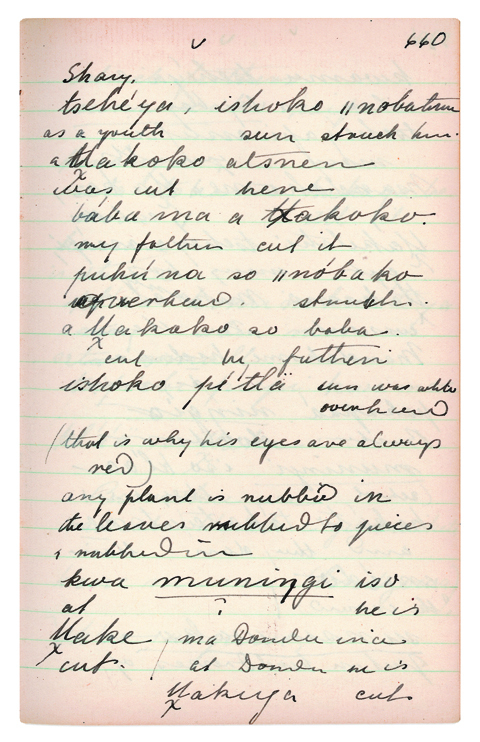 660
Shary.
tshéya, ishoko ǁnobatum
as a youth sun struck him.
a takoko atsnen
was cut here
bába ma a takoko.
my father cut it
pukúna so ǁnóbako
overhead. struck.
a ǁakoko so baba.
cut by father
ishoko pétlä sun was white
overhead
(that is why his eyes are always
red)
any plant is rubbed in
the leaves rubbed to pieces
& rubbed in
kwa muningi iso
at ? he is
ǁake ma Dondu
cut. at Dondu is
ǁakuya cut